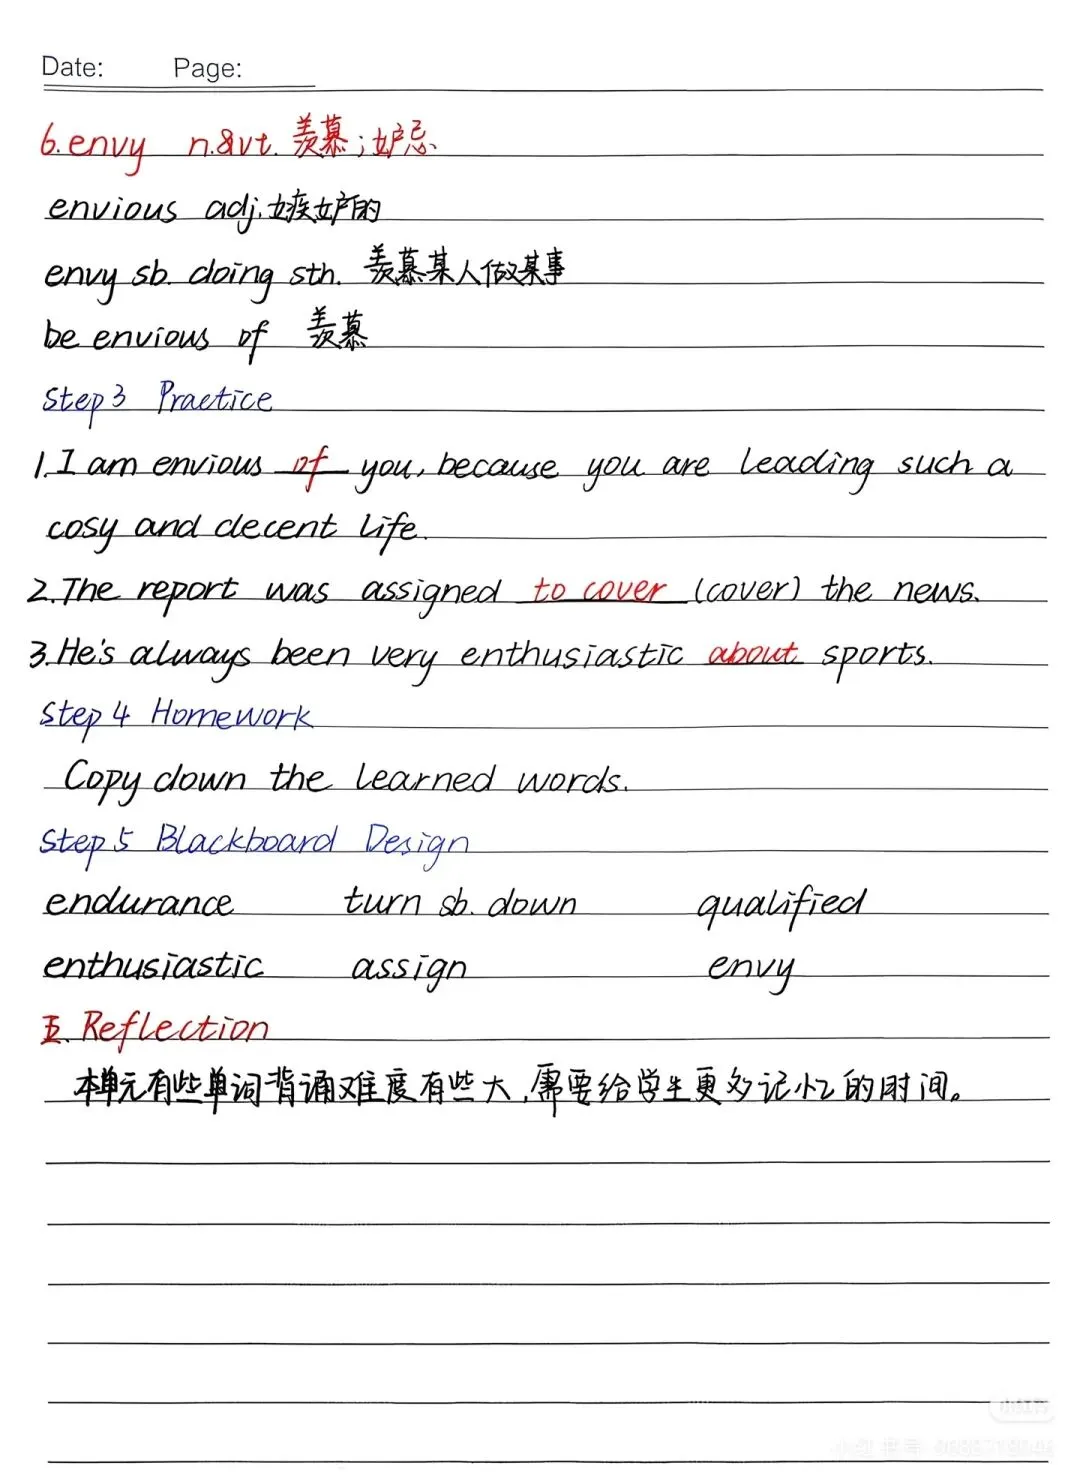 Date: Page:
6. envy n.&vt. 羡慕；妒忌
envious adj. 嫉妒的
envy sb. doing sth. 羡慕某人做某事
be envious of 羡慕
Step 3 Practice
1. I am envious of you, because you are leading such a
cosy and decent life.
2. The report was assigned to cover (cover) the news.
3. He's always been very enthusiastic about sports.
Step 4 Homework
Copy down the learned words.
Step 5 Blackboard Design
endurance turn sb. down qualified
enthusiastic assign envy
五. Reflection
本单元有些单词背诵难度有些大，需要给学生更多记忆的时间。
小红书
小红书号: